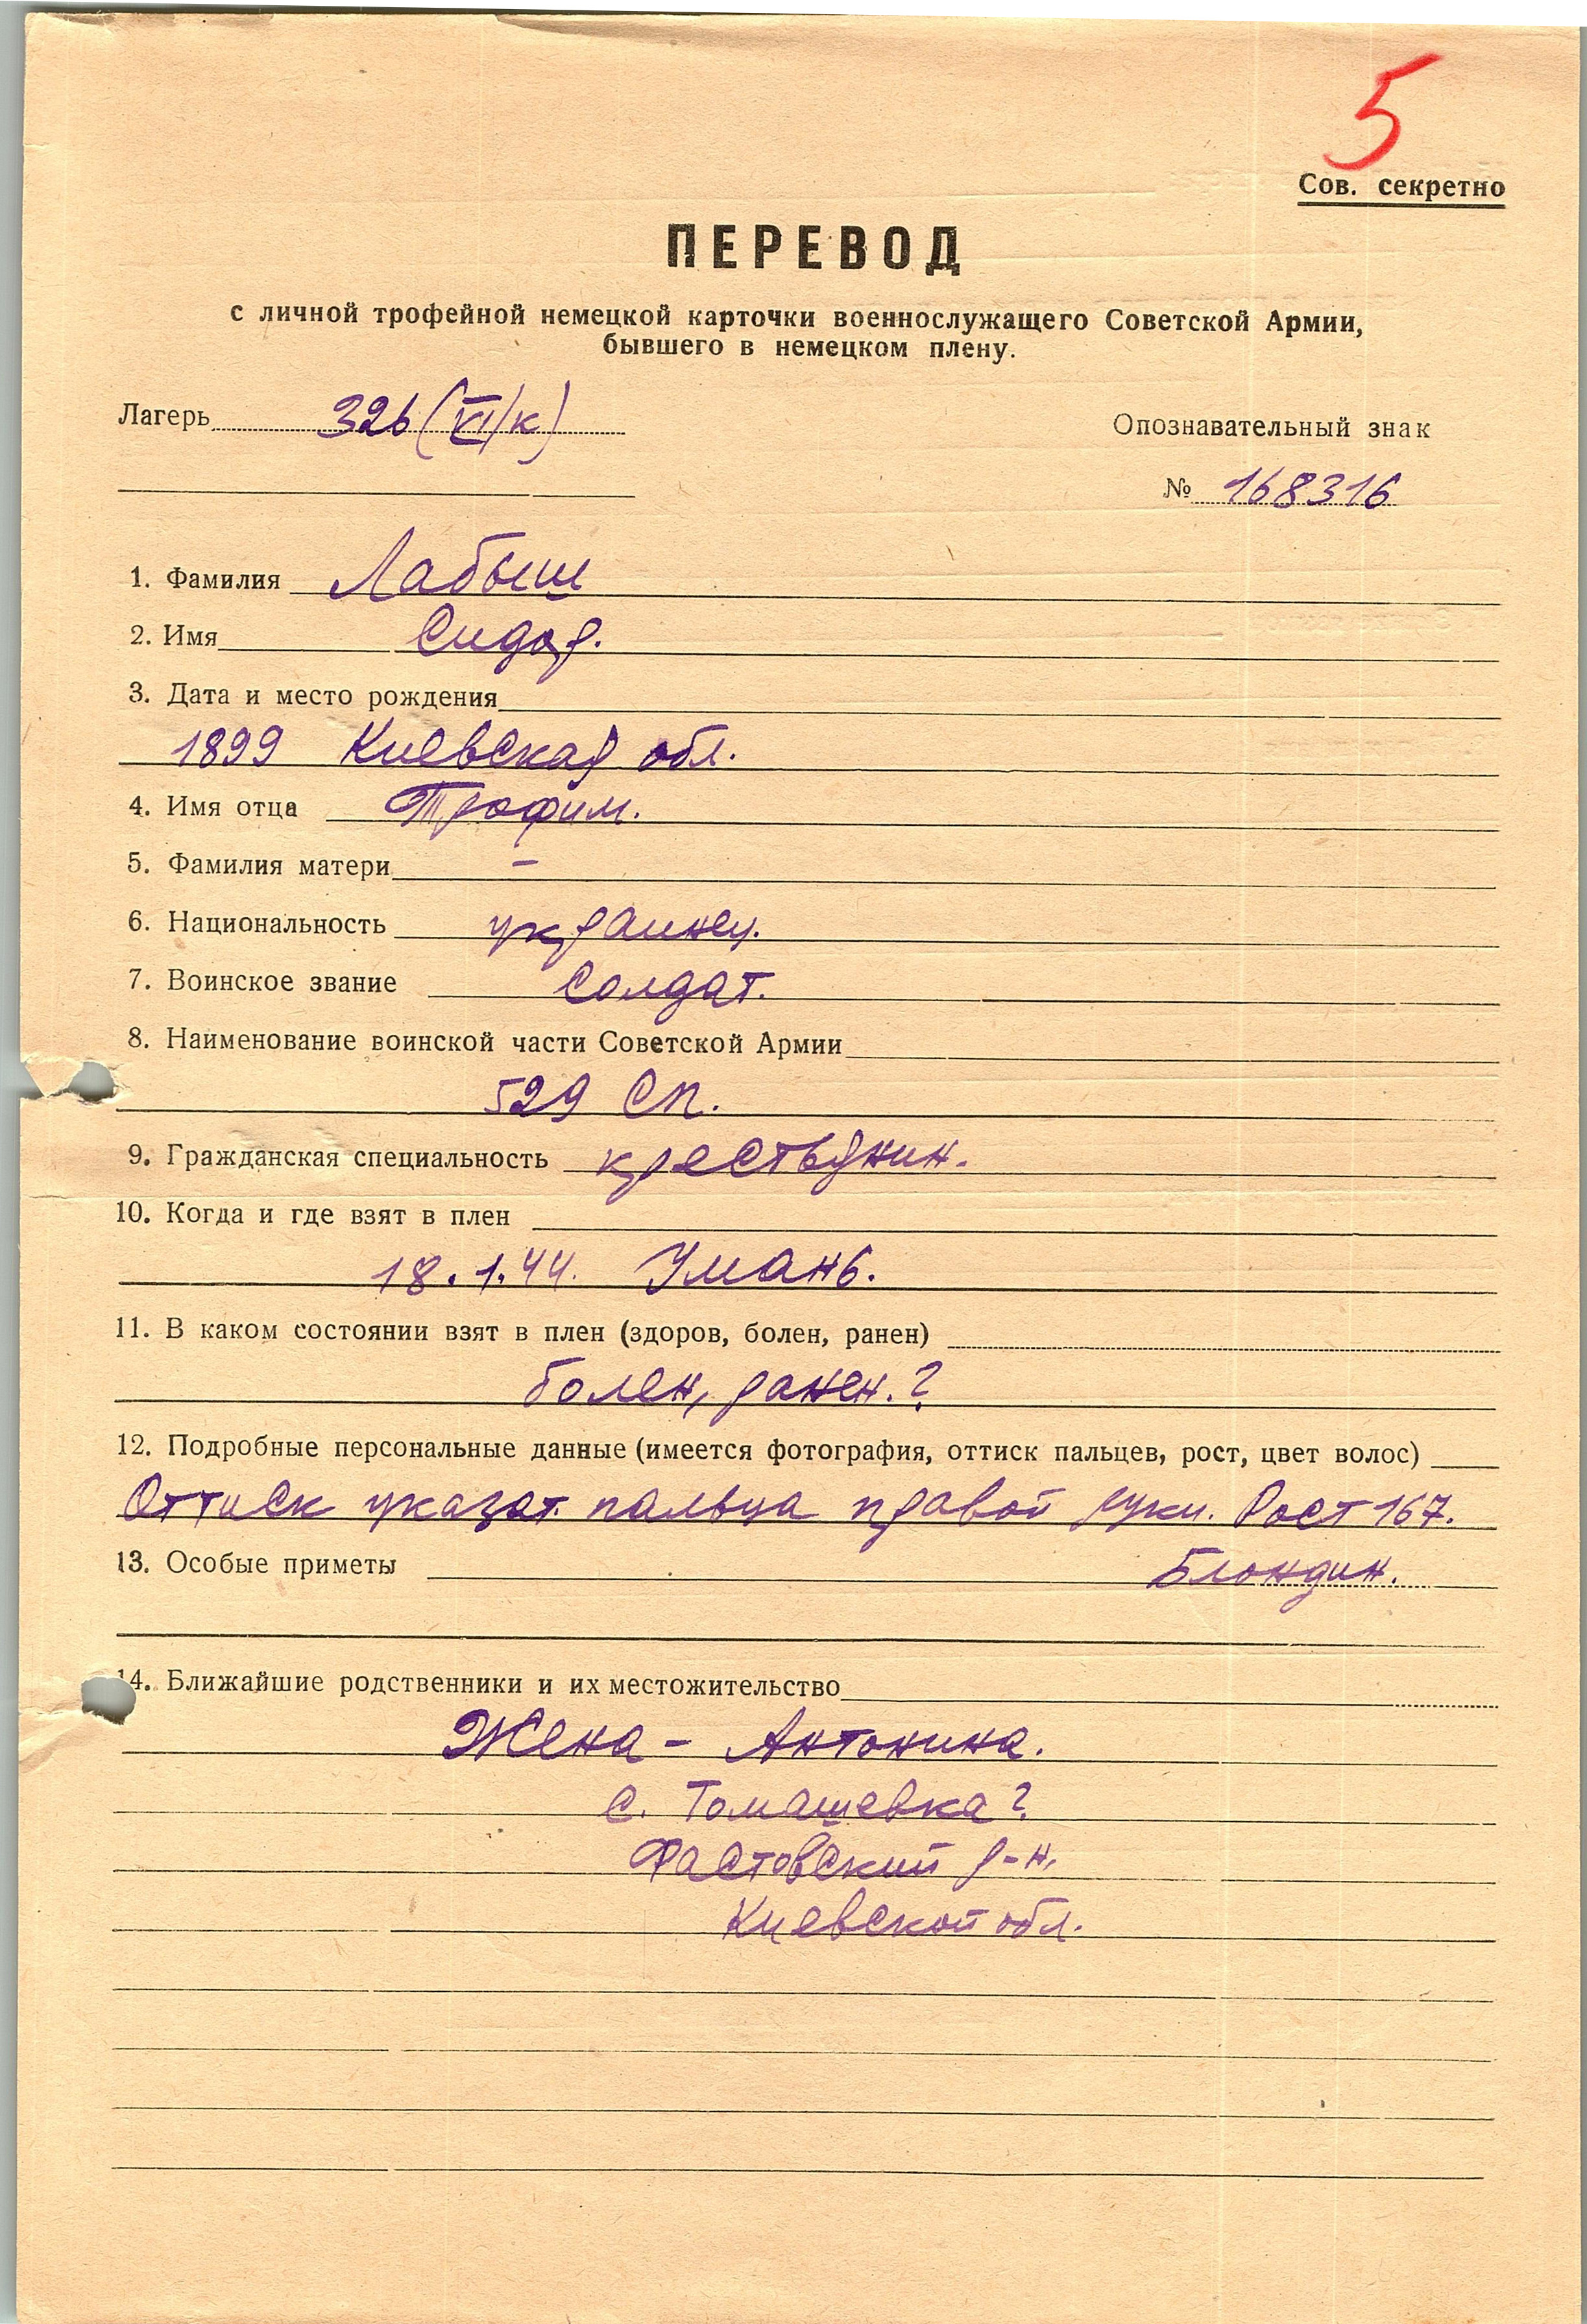 5
Сов. секретно
ПЕРЕВОД
с личной трофейной немецкой карточки военнослужащего Советской Армии,
бывшего в немецком плену.
Лагерь 326 (VI/к)
Опознавательный знак
№ 168316
1. Фамилия Лабыш
2. Имя Сидор.
3. Дата и место рождения
1899 Киевская обл.
4. Имя отца Трофим.
5. Фамилия матери –
6. Национальность украинец.
7. Воинское звание Солдат.
8. Наименование воинской части Советской Армии
529 СП.
9. Гражданская специальность крестьянин.
10. Когда и где взят в плен
18.1.44. Умань.
11. В каком состоянии взят в плен (здоров, болен, ранен)
болен, ранен.?
12. Подробные персональные данные (имеется фотография, оттиск пальцев, рост, цвет волос)
Оттиск указат. пальца правой руки. Рост 167.
13. Особые приметы Блондин.
14. Ближайшие родственники и их местожительство
Жена – Антонина.
с. Томашевка?
Фастовский р-н.
Киевской обл.